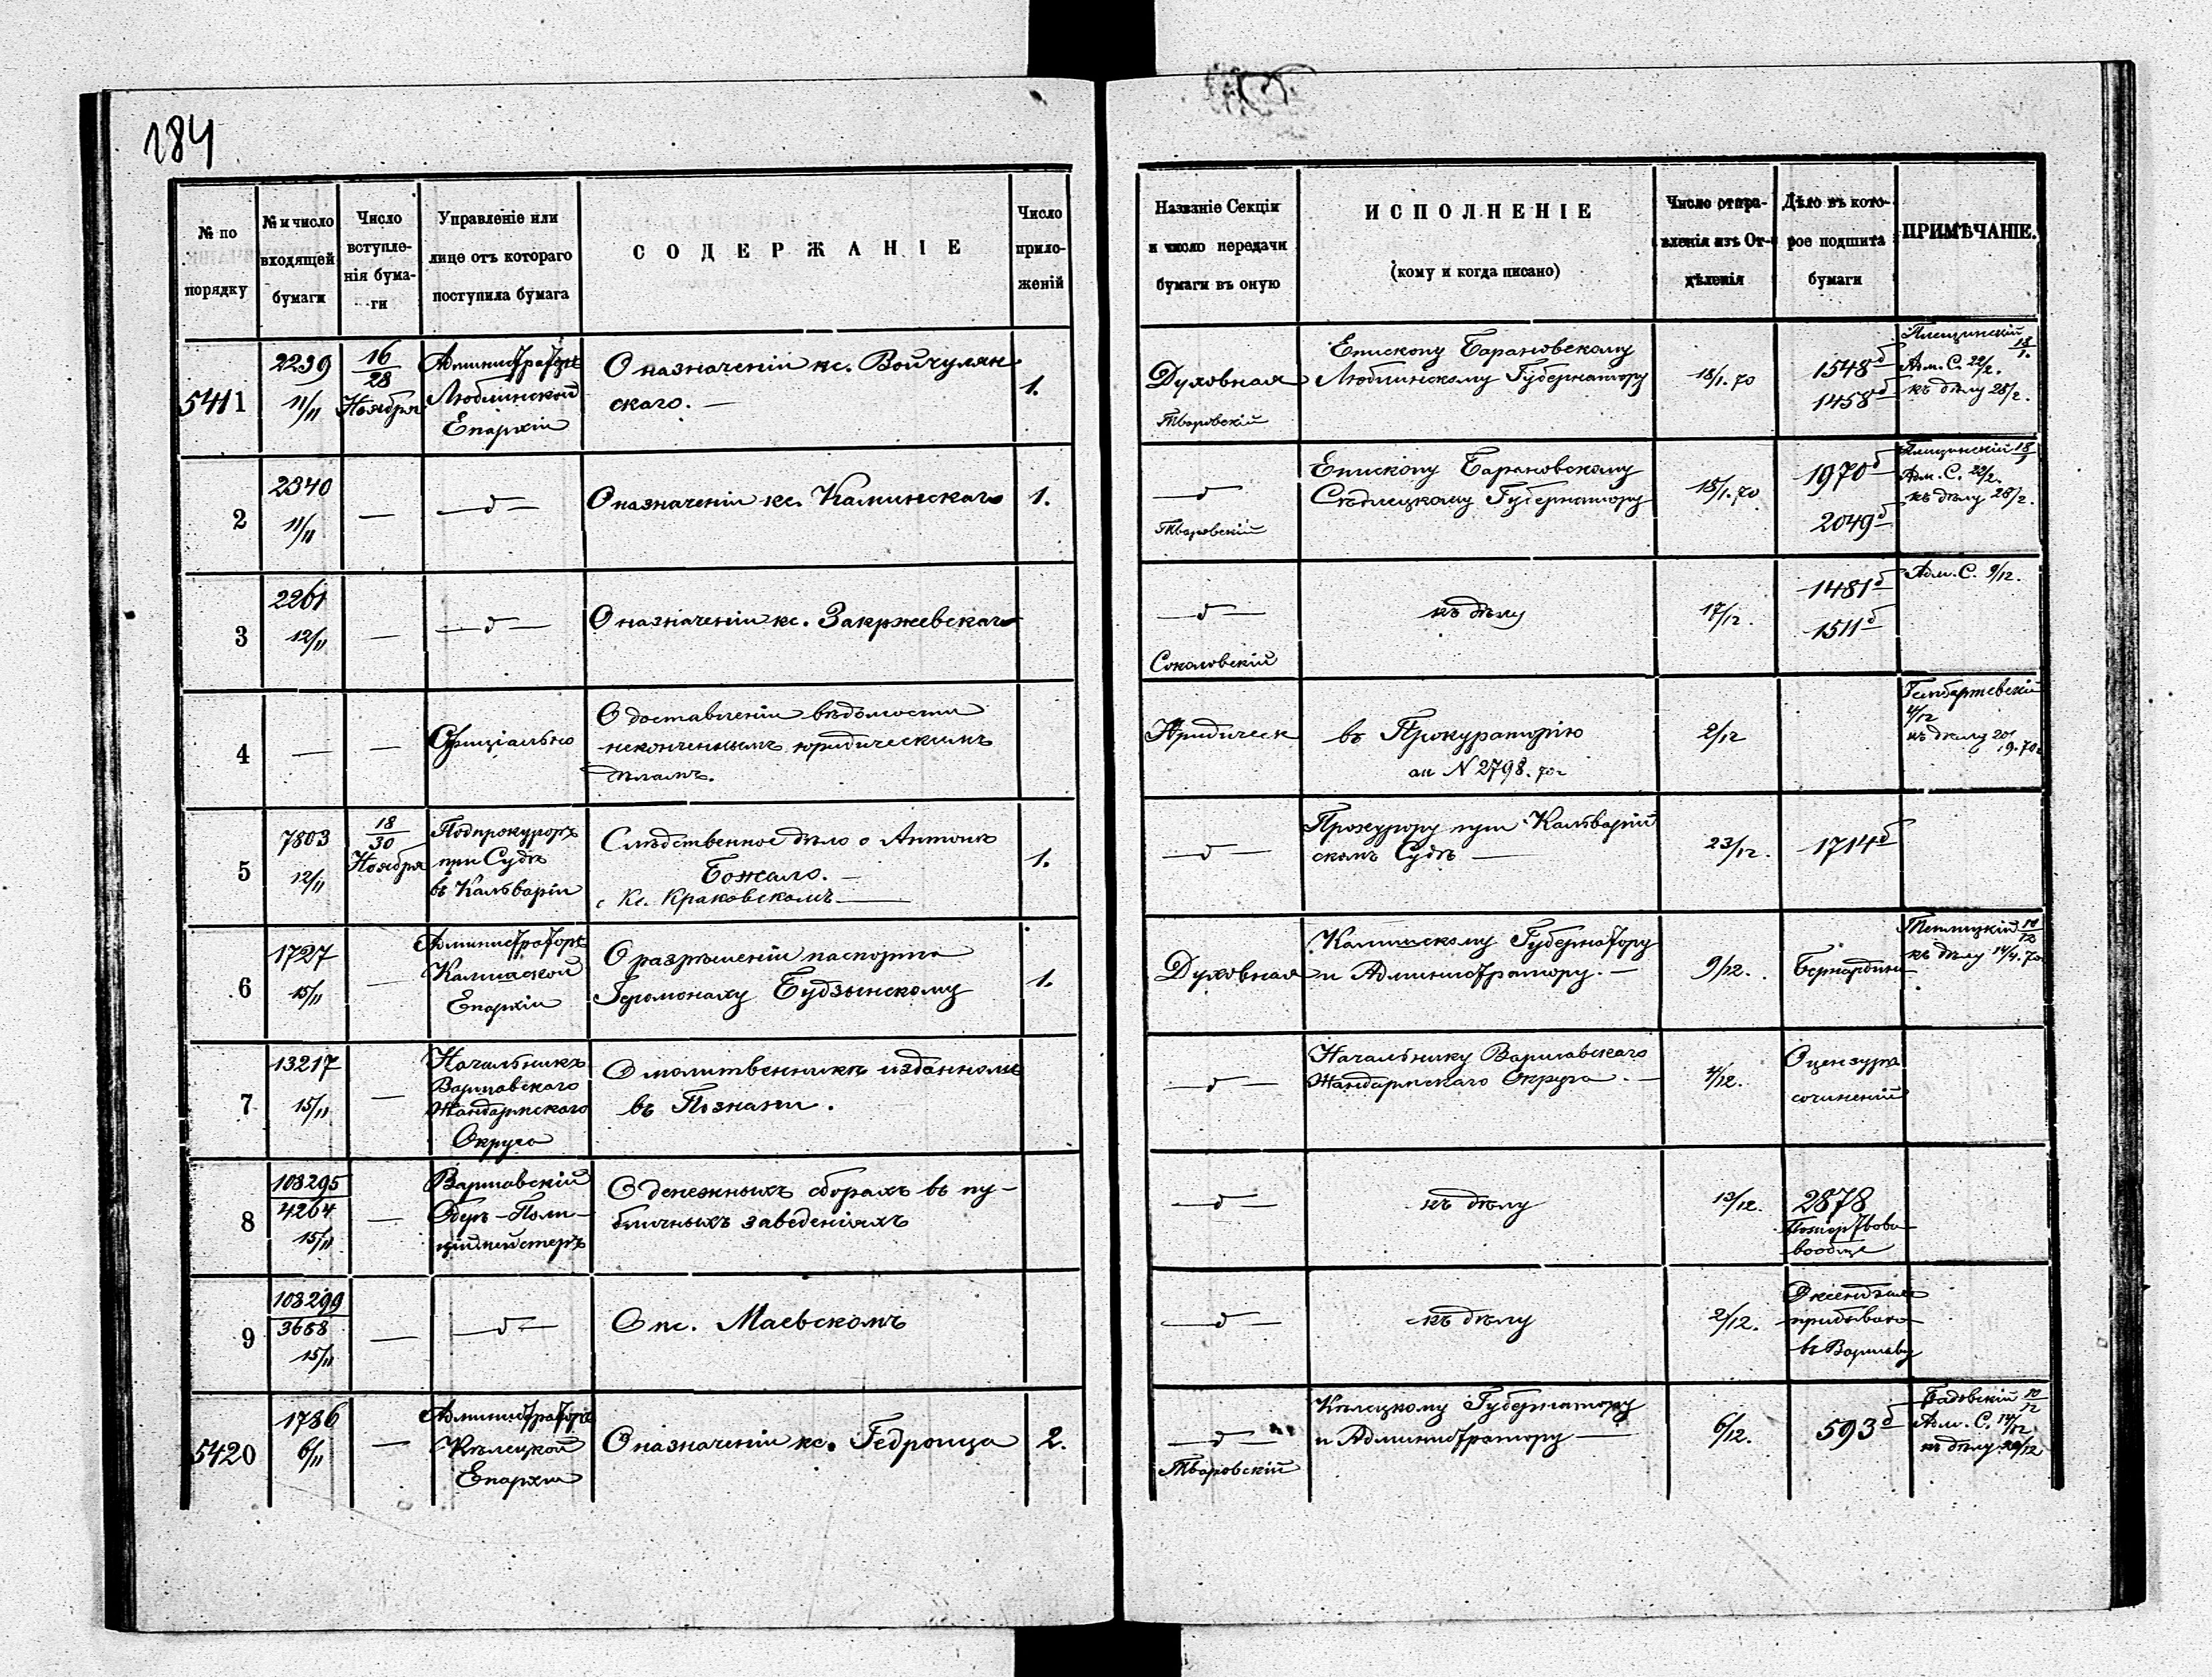 184
№ по порядку
№ и число входящей бумаги
Число вступле-
нія бума-
ги
Управленіе или
лице отъ котораго
поступила бумага
СОДЕРЖАНІЕ
Число
прило-
женій
Названіе Секціи
и число передачи
бумаги въ оную
ИСПОЛНЕНІЕ
(кому и когда писано)
Число отпра-
вленія изъ От-
дѣленія
Дѣло въ кото-
рое подшита
бумаги
ПРИМѢЧАНІЕ.
5411
2239
11/11
16/28
Ноября
Администраторъ
Люблинской
Епархіи
О назначеніи кс. Войчулян
скаго. —
1.
Духовная
Тваровскій
Епископу Барановскому
Люблинскому Губернатору
18/1. 70
1548
1458
18/1.
Адм. С. 22/2.
къ дѣлу 28/2.
2
2340
11/11
—
— д —
О назначеніи кс. Каминскаго
1.
— д —
Тваровскій
Епископу Барановскому
Сѣдлецкому Губернатору
18/1. 70
1970
2049
Адм. С. 22/2.
къ дѣлу 28/2.
3
2261
12/11
—
— д —
О назначеніи кс. Закржевскаго
— д —
Соколовскій
къ дѣлу
17/12.
1481
1511
Адм. С. 9/12.
4
—
—
Офиціально
О доставленіи вѣдомости
неконченнымъ юридическимъ
дѣламъ.
Юридическ
въ Прокураторію
N 2798. 70
2/12
4/12
къ дѣлу
5
7803
12/11
18/30
Ноября
Подпрокуроръ
при Судѣ
въ Кальваріи
Слѣдственное дѣло о Антонѣ
Божало. —
Кс. Краковскомъ —
1.
— д —
Прокурору при Кальварій
скомъ Судѣ —
23/12.
1714
6
1727
15/11
—
Администраторъ
Калишской
Епархіи
О разрѣшеніи паспорта
Іеромонаху Будзынскому
1.
Духовная
Калишскому Губернатору
и Администратору. —
9/12.
Бернардини
10/12
къ дѣлу 14/4. 70
7
13217
15/11
—
Начальникъ
Варшавскаго
Жандармскаго
Округа
О молитвенникѣ изданномъ
въ Познани.
— д —
Начальнику Варшавскаго
Жандармскаго Округа. —
4/12.
О цензурѣ
сочиненій
8
108295
4264
15/11
—
Варшавскій
Оберъ-Поли-
ціймейстеръ
О денежныхъ сборахъ въ пу-
бличныхъ заведеніяхъ
— д —
къ дѣлу
13/12.
2878
вообще
9
108299
3658
15/11
—
— д —
О кс. Маевскомъ
— д —
къ дѣлу
2/12.
въ Варшаву
5420
1786
6/11
—
Администраторъ
Кѣлецкой
Епархіи
О назначеніи кс. Гедройца
2.
— д —
Тваровскій
Кѣлецкому Губернатору
и Администратору —
6/12.
593
10/12
Адм. С. 14/12
къ дѣлу